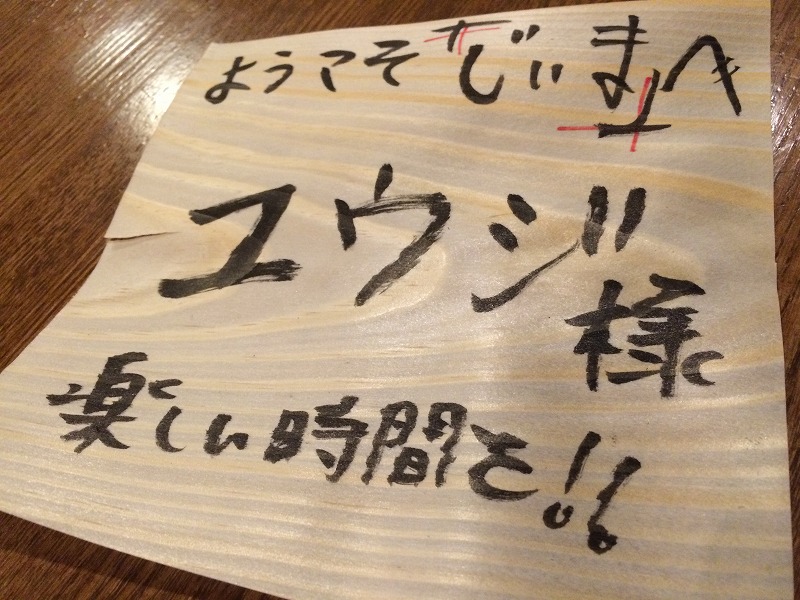 ようこそ『じぃま』へ
ユウジ様
楽しい時間を!!